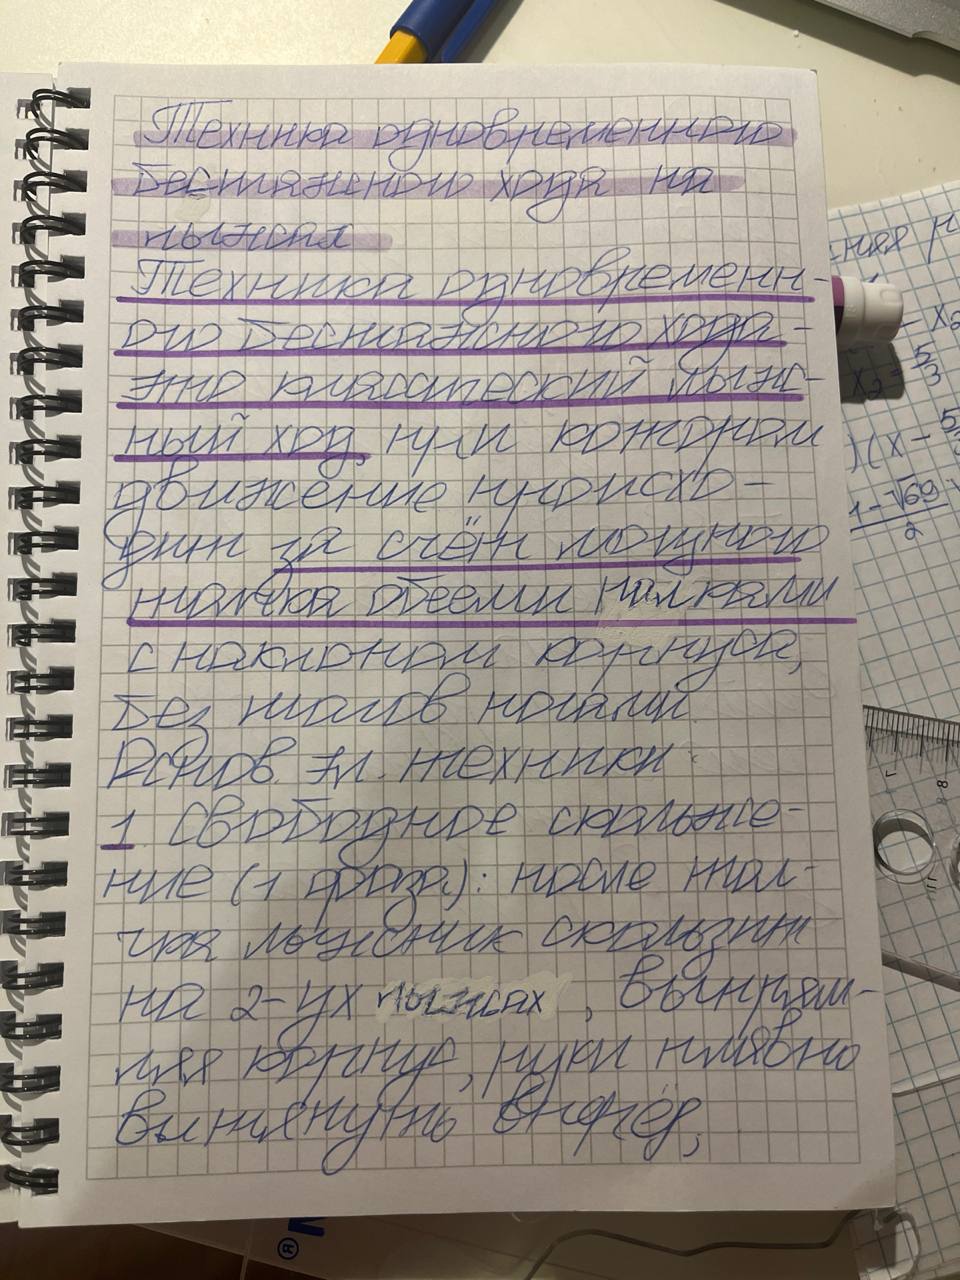 Техника одновременного
бесшажного хода на
лыжах
Техника одновременн-
ого бесшажного хода -
это классический лыж-
ный ход, при котором
движение происхо-
дит за счёт мощного
толчка обеими палками
с наклоном корпуса,
без шагов ногами.
Основ. эл. техники:
1. Свободное скольже-
ние (1 фаза): после тол-
чка лыжник скользит
на 2-ух лыжах, выпрям-
ляя корпус, руки плавно
вытянуть вперёд,
ния
- x₂
x₂ = 5/3
)(x - 5
1-√69
2
8